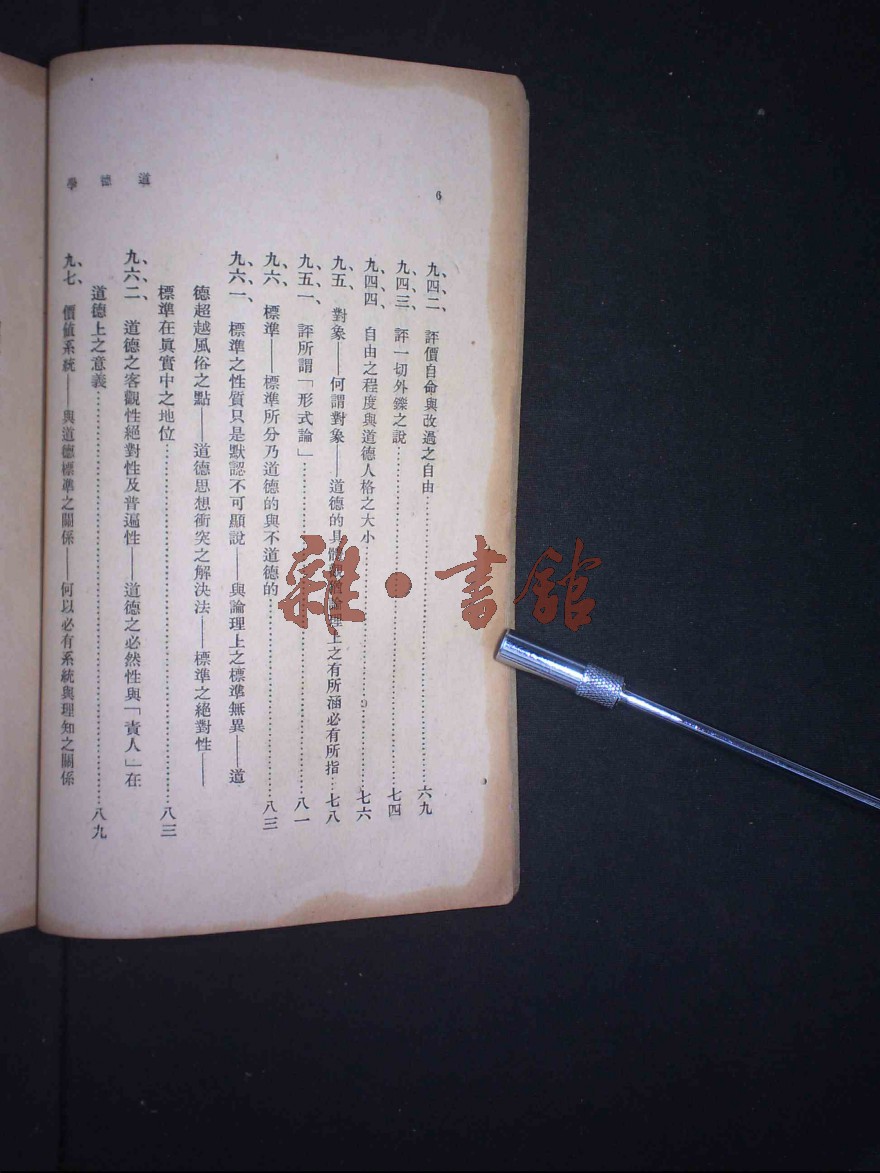 道德學
6
九、四二、 評價自命與改過之自由……六九
九、四三、 評一切外鑠之說……七四
九、四四、 自由之程度與道德人格之大小……七六
九、五、 對象——何謂對象——道德的具 論理上之有所涵必有所指…七八
九、五一、 評所謂「形式論」……八一
九、六、 標準——標準所分乃道德的與不道德的……八三
九、六一、 標準之性質只是默認不可顯說——與論理上之標準無異——道
德超越風俗之點——道德思想衝突之解決法——標準之絕對性——
標準在眞實中之地位……八三
九、六二、 道德之客觀性絕對性及普遍性——道德之必然性與「責人」在
道德上之意義……八九
九、七、 價値系統——與道德標準之關係——何以必有系統與理知之關係
雜·書館